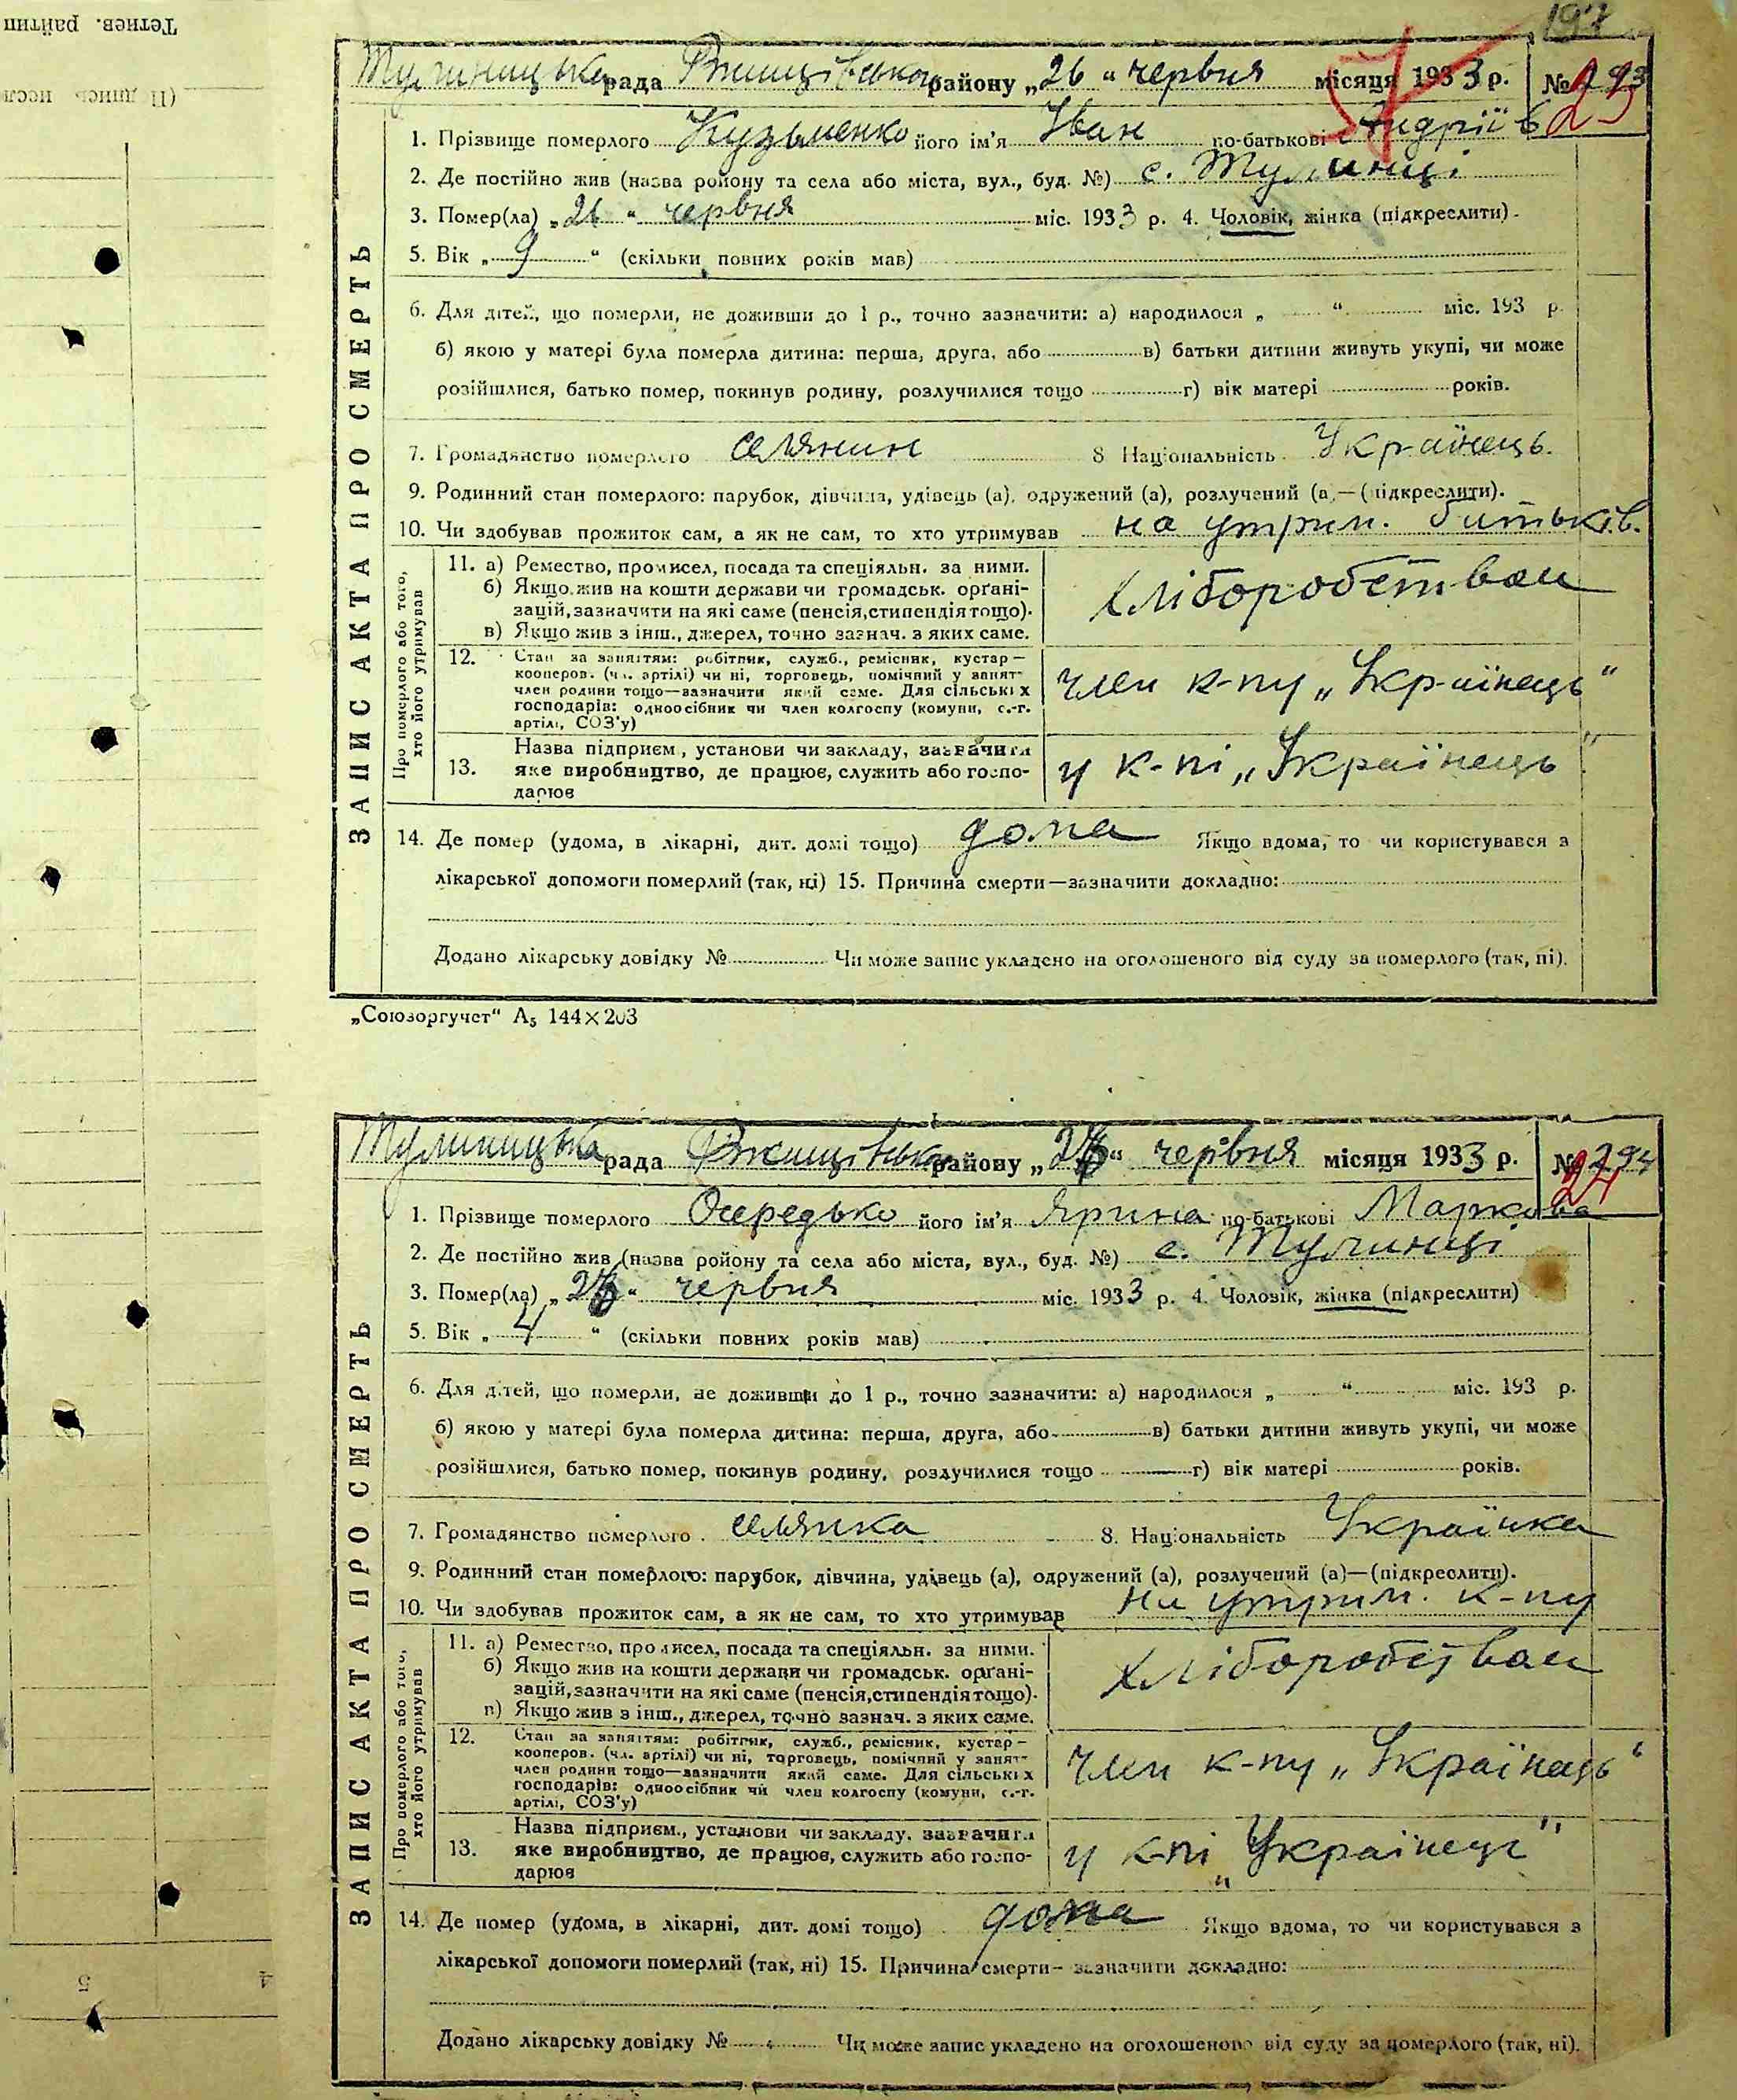 Тетиев. райтип
197
Тулиницька рада Ржищівського району „26“ червня місяця 1933 р. № 293
23
1. Прізвище померлого Кузьменко його ім’я Іван по-батькові Андріїв
2. Де постійно жив (назва ройону та села або міста, вул., буд. №) с. Тулинці
3. Помер(ла) „26“ червня міс. 1933 р. 4. Чоловік, жінка (підкреслити).
5. Вік „9“ (скільки повних років мав)
6. Для дітей, що померли, не доживши до 1 р., точно зазначити: а) народилося „ “ міс. 193 р.
б) якою у матері була померла дитина: перша, друга, або в) батьки дитини живуть укупі, чи може
розійшлися, батько помер, покинув родину, розлучилися тощо г) вік матері років.
7. Громадянство померлого селянин 8 Національність Українець.
9. Родинний стан померлого: парубок, дівчина, удівець (а), одружений (а), розлучений (а)—(підкреслити).
10. Чи здобував прожиток сам, а як не сам, то хто утримував на утрим. батьків.
ЗАПИС АКТА ПРО СМЕРТЬ
Про померлого або того, хто його утримував
11. а) Ремество, промисел, посада та спеціяльн. за ними.
б) Якщо жив на кошти держави чи громадськ. орґані-
зацій, зазначити на які саме (пенсія, стипендія тощо).
в) Якщо жив з інш., джерел, точно зазнач. з яких саме.
хліборобством
12. Стан за заняттям: робітник, служб., ремісник, кустар—
кооперов. (чл. артілі) чи ні, торговець, помічний у занят-
член родини тощо—зазначити який саме. Для сільських
господарів: одноосібник чи член колгоспу (комуни, с.-г.
артілі, СОЗ'у)
член к-пу „Українець“
13. Назва підприєм., установи чи закладу, зазначити
яке виробництво, де працює, служить або госпо-
дарює
у к-пі „Українець“
14. Де помер (удома, в лікарні, дит. домі тощо) дома Якщо вдома, то чи користувався з
лікарської допомоги померлий (так, ні) 15. Причина смерти—зазначити докладно:
Додано лікарську довідку № Чи може запис укладено на оголошеного від суду за померлого (так, ні).
„Союзоргучет“ А5 144×203
Тулиницька рада Ржищівського району „ “ червня місяця 1933 р. № 294
24
1. Прізвище померлого Осередько його ім’я Ярина по-батькові Маркова
2. Де постійно жив (назва ройону та села або міста, вул., буд. №) с. Тулинці
3. Помер(ла) „ “ червня міс. 1933 р. 4. Чоловік, жінка (підкреслити)
5. Вік „4“ (скільки повних років мав)
6. Для дітей, що померли, не доживши до 1 р., точно зазначити: а) народилося „ “ міс. 193 р.
б) якою у матері була померла дитина: перша, друга, або в) батьки дитини живуть укупі, чи може
розійшлися, батько помер, покинув родину, розлучилися тощо г) вік матері років.
7. Громадянство померлого селянка 8. Національність Українка
9. Родинний стан померлого: парубок, дівчина, удівець (а), одружений (а), розлучений (а)—(підкреслити).
10. Чи здобував прожиток сам, а як не сам, то хто утримував на утрим. к-пу
ЗАПИС АКТА ПРО СМЕРТЬ
Про померлого або того, хто його утримував
11. а) Ремество, промисел, посада та спеціяльн. за ними.
б) Якщо жив на кошти держави чи громадськ. орґані-
зацій, зазначити на які саме (пенсія, стипендія тощо).
в) Якщо жив з інш., джерел, точно зазнач. з яких саме.
хліборобством
12. Стан за заняттям: робітник, служб., ремісник, кустар—
кооперов. (чл. артілі) чи ні, торговець, помічний у занят-
член родини тощо—зазначити який саме. Для сільських
господарів: одноосібник чи член колгоспу (комуни, с.-г.
артілі, СОЗ'у)
член к-пу „Українець“
13. Назва підприєм., установи чи закладу, зазначити
яке виробництво, де працює, служить або госпо-
дарює
у к-пі „Українець“
14. Де помер (удома, в лікарні, дит. домі тощо) дома Якщо вдома, то чи користувався з
лікарської допомоги померлий (так, ні) 15. Причина смерти—зазначити докладно:
Додано лікарську довідку № Чи може запис укладено на оголошеного від суду за померлого (так, ні).
5 4